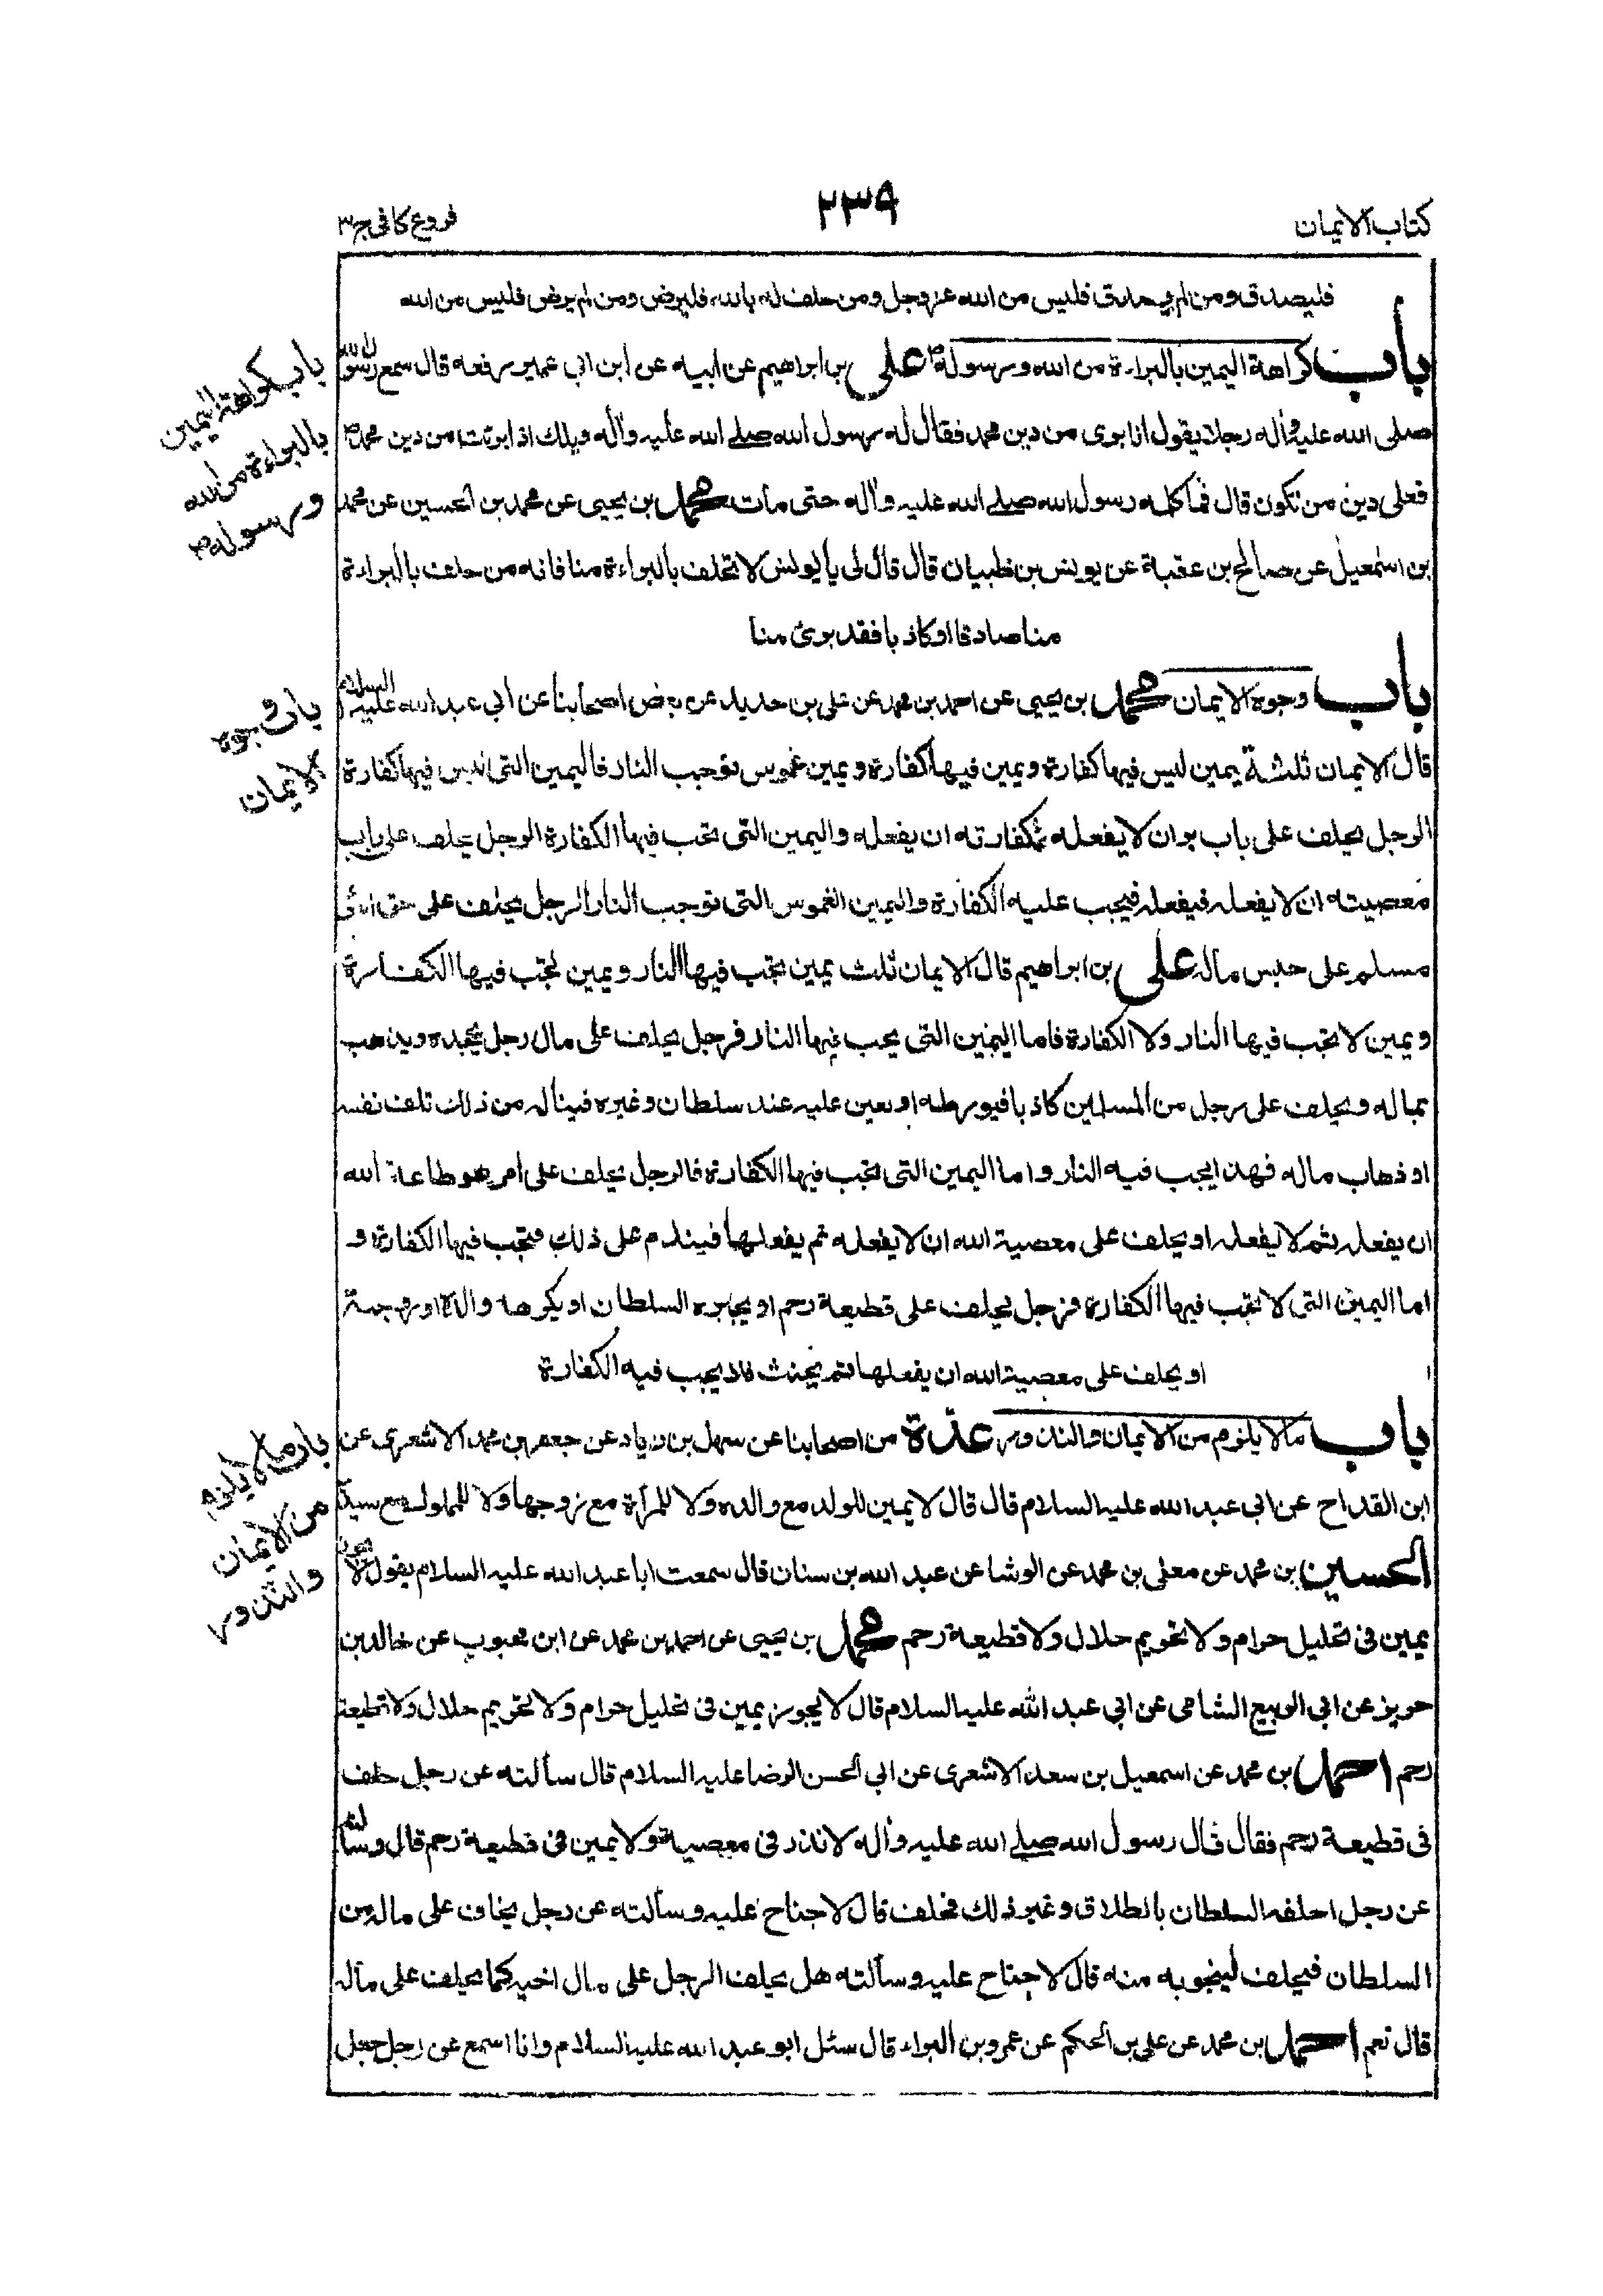 كتاب الايمان
٢٣٩
فروع كافى ج٣
فليصدق ومن لم يصدق فليس من الله عزوجل ومن حلف له بالله فليرض ومن لم يرض فليس من الله
باب كراهة اليمين بالبراءة من الله ورسوله ص على بن ابراهيم عن ابيه عن ابن ابى عمير رفعه قال سمع رسول الله
صلى الله عليه وآله رجلا يقول انا برى من دين محمد فقال له رسول الله صلى الله عليه وآله ويلك اذا برئت من دين محمد ص
فعلى دين من تكون قال فما كلمه رسول الله صلى الله عليه وآله حتى مات محمد بن يحيى عن محمد بن الحسين عن محمد
بن اسمعيل عن صالح بن عقبة عن يونس بن ظبيان قال قال لى يا يونس لا تحلف بالبراءة منا فانه من حلف بالبراءة
منا صادقا او كاذبا فقد برئ منا
باب وجوه الايمان محمد بن يحيى عن احمد بن محمد عن على بن حديد عن بعض اصحابنا عن ابى عبد الله عليه السلام
قال الايمان ثلثة يمين ليس فيها كفارة ويمين فيها كفارة ويمين غموس توجب النار فاليمين التى ليس فيها كفارة
الرجل يحلف على باب بر ان لا يفعله فكفارته ان يفعله واليمين التى تجب فيها الكفارة الرجل يحلف على باب
معصيته ان لا يفعله فيفعله فيجب عليه الكفارة واليمين الغموس التى توجب النار الرجل يحلف على حق امرئ
مسلم على حبس ماله على بن ابراهيم قال الايمان ثلث يمين تجب فيها النار ويمين تجب فيها الكفارة
ويمين لا تجب فيها النار ولا الكفارة فاما اليمين التى يجب فيها النار فرجل يحلف على مال رجل يجحده ويذهب
بماله ويحلف على رجل من المسلمين كاذبا فيورطه او يعين عليه عند سلطان وغيره فيناله من ذلك تلف نفسه
او ذهاب ماله فهذا يجب فيه النار واما اليمين التى تجب فيها الكفارة فالرجل يحلف على امر هو طاعة الله
ان يفعله ثم لا يفعله او يحلف على معصية الله ان لا يفعله ثم يفعلها فيندم على ذلك فتجب فيها الكفارة و
اما اليمين التى لا تجب فيها الكفارة فرجل يحلف على قطيعة رحم او يجابره السلطان او يكرهه والده او زوجته
او يحلف على معصية الله ان يفعلها ثم يحنث فلا يجب فيه الكفارة
باب ما لا يلزم من الايمان والنذور عدة من اصحابنا عن سهل بن زياد عن جعفر بن محمد الاشعرى عن
ابن القداح عن ابى عبد الله عليه السلام قال قال لا يمين للولد مع والده ولا للمرأة مع زوجها ولا للمملوك مع سيده
الحسين بن محمد عن معلى بن محمد عن الوشا عن عبد الله بن سنان قال سمعت ابا عبد الله عليه السلام يقول لا يجوز
يمين فى تحليل حرام ولا تحريم حلال ولا قطيعة رحم محمد بن يحيى عن احمد بن محمد عن ابن محبوب عن خالد بن
حريز عن ابى الربيع الشامى عن ابى عبد الله عليه السلام قال لا يجوز يمين فى تحليل حرام ولا تحريم حلال ولا قطيعة
رحم احمد بن محمد عن اسمعيل بن سعد الاشعرى عن ابى الحسن الرضا عليه السلام قال سألته عن رجل حلف
فى قطيعة رحم فقال قال رسول الله صلى الله عليه وآله لا نذر فى معصية ولا يمين فى قطيعة رحم قال وسألته
عن رجل احلفه السلطان بالطلاق وغير ذلك فحلف قال لا جناح عليه وسألته عن رجل يخاف على ماله من
السلطان فيحلف لينجو به منه قال لا جناح عليه وسألته هل يحلف الرجل على مال اخيه كما يحلف على ماله
قال نعم احمد بن محمد عن على بن الحكم عن عمرو بن البراء قال سئل ابو عبد الله عليه السلام وانا اسمع عن رجل جعل
باب كراهة اليمين
بالبراءة من الله
ورسوله ص
باب وجوه
الايمان
باب ما لا يلزم
من الايمان
والنذور